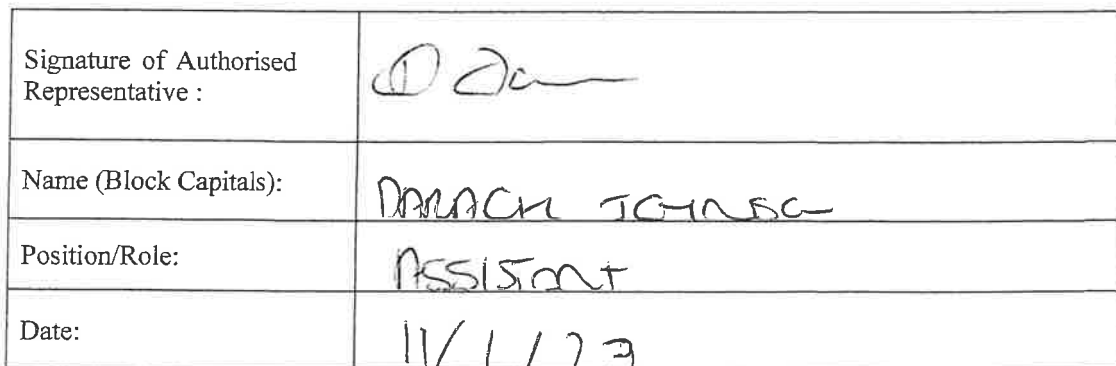 Signature of Authorised
Representative :
Name (Block Capitals):
DARACH
Position/Role:
ASSISTANT
Date:
11/1/23